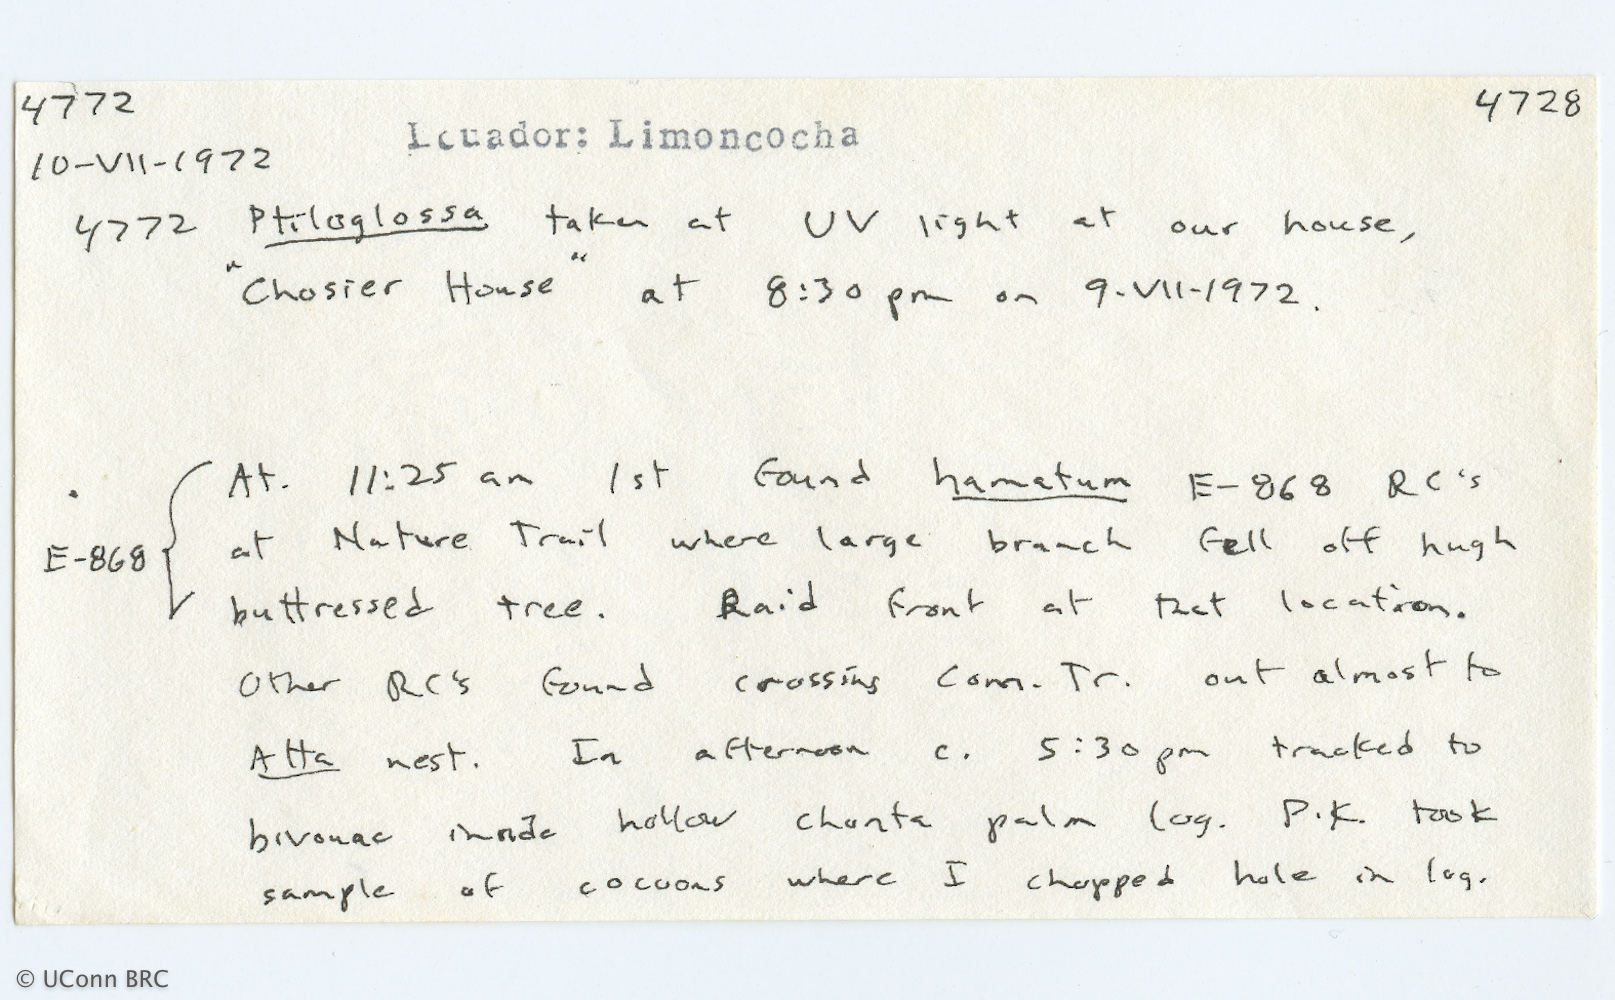 4772
4728
10-VII-1972
Ecuador: Limoncocha
4772 Ptiloglossa taken at UV light at our house,
"Chosier House" at 8:30 pm on 9-VII-1972.
E-868
At. 11:25 am 1st found hamatum E-868 RC's
at Nature Trail where large branch fell off hugh
buttressed tree. Raid front at that location.
Other RC's found crossing Conn. Tr. out almost to
Atta nest. In afternoon c. 5:30 pm tracked to
bivouac inside hollow chonta palm log. P.K. took
sample of cocoons where I chopped hole in log.
© UConn BRC